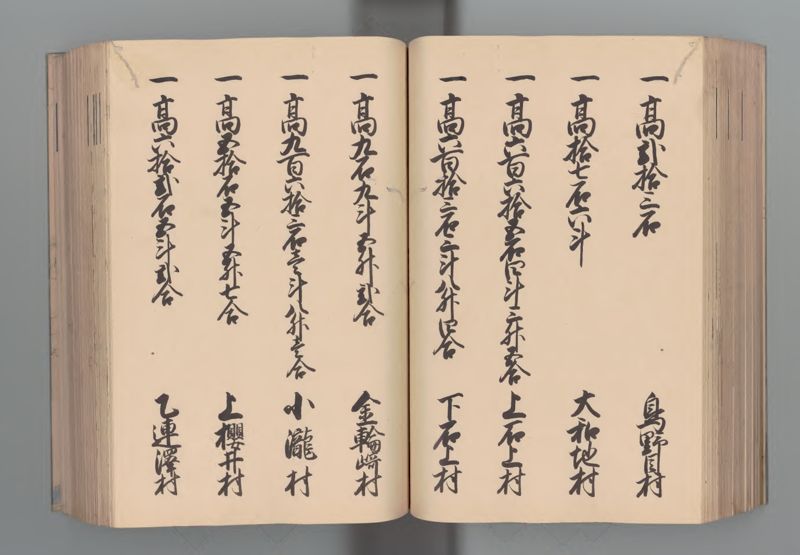 一 高弐拾三石 鳥野目村
一 高拾七石六斗 大和地村
一 高六百六拾五石四斗三升五合 上石上村
一 高六百拾三石三斗八升四合 下石上村
一 高九石九斗五升弐合 金輪崎村
一 高九百六拾三石壱斗八升壱合 小瀧村
一 高五拾石五斗五升七合 上櫻井村
一 高六拾弐石五斗弐合 乙連澤村